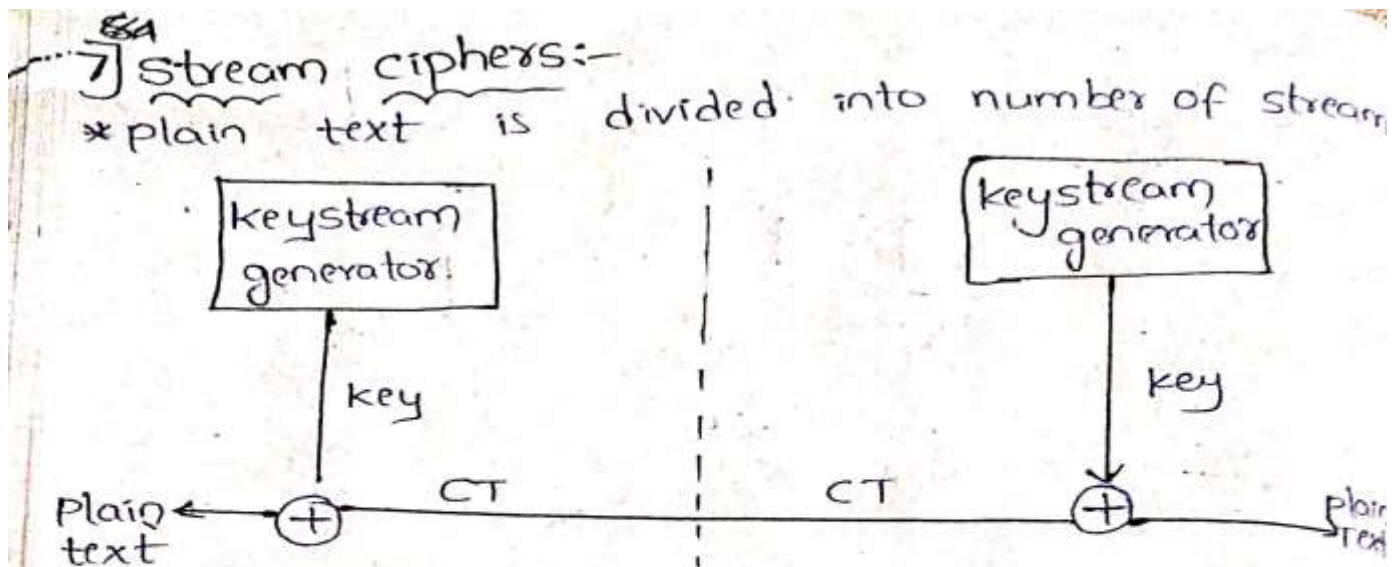 7] stream ciphers:-
* plain text is divided into number of stream
keystream
generator
keystream
generator
key
key
plain
text
CT
CT
plain
Text